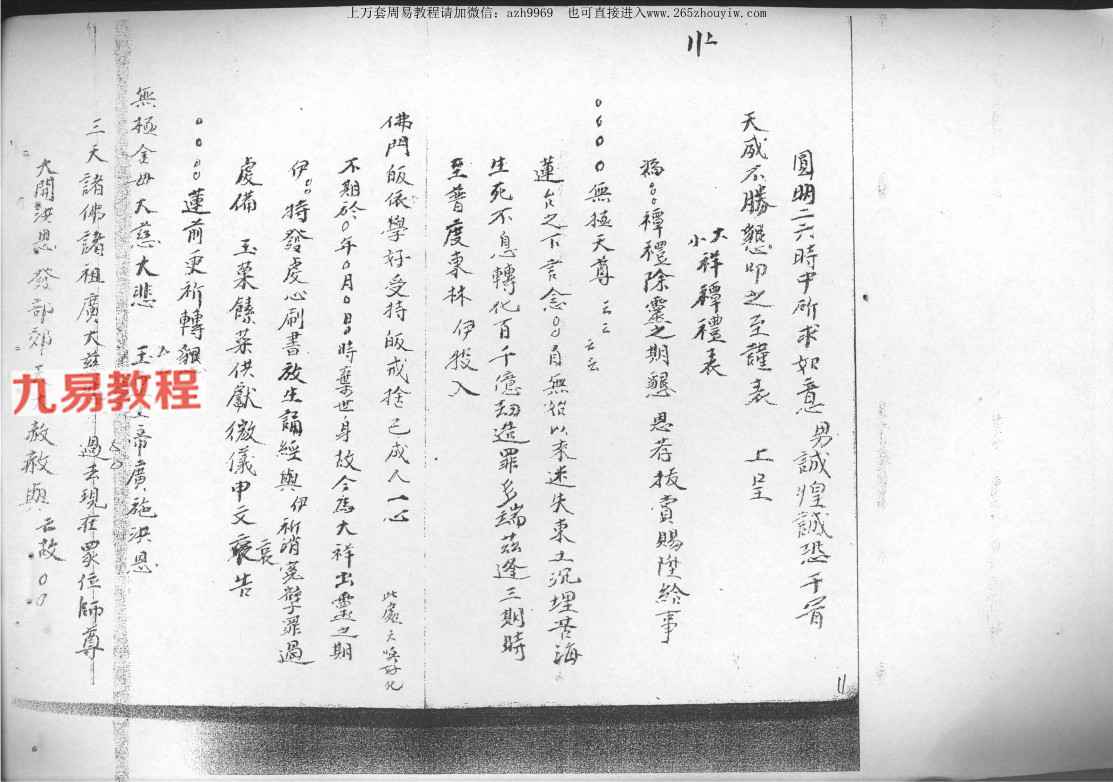 上万套周易教程请加微信：azh9969 也可直接进入www.265zhouyiw.com
圓明二六時中所求如意 男誠惶誠恐千胃
天威不勝懇叩之至謹表 上呈
大小祥禫禮表
為○○禫禮除靈之期懇恩荐拔賞賜陞給事
○○○○無極天尊 云云 云云
蓮台之下言念○○自無始以來迷失東土沉埋苦海
生死不息轉化百千億劫造罪多端茲逢三期時
至普度東林 伊投入
佛門皈依學好受持皈戒捨己成人一心
不期於○年○月○日○時棄世身故今為大祥出靈之期
伊○○特發虔心刷書放生誦經與伊祈消冤孽罪過
虔備 玉菓饈菜供獻微儀申文 哀告
○○○○蓮前更祈轉
無極金母大慈大悲 玉 帝廣施洪恩
三天諸佛諸祖廣大慈 過去現在眾位師尊
大開洪恩發部 赦 與 云故○○
九易教程
11